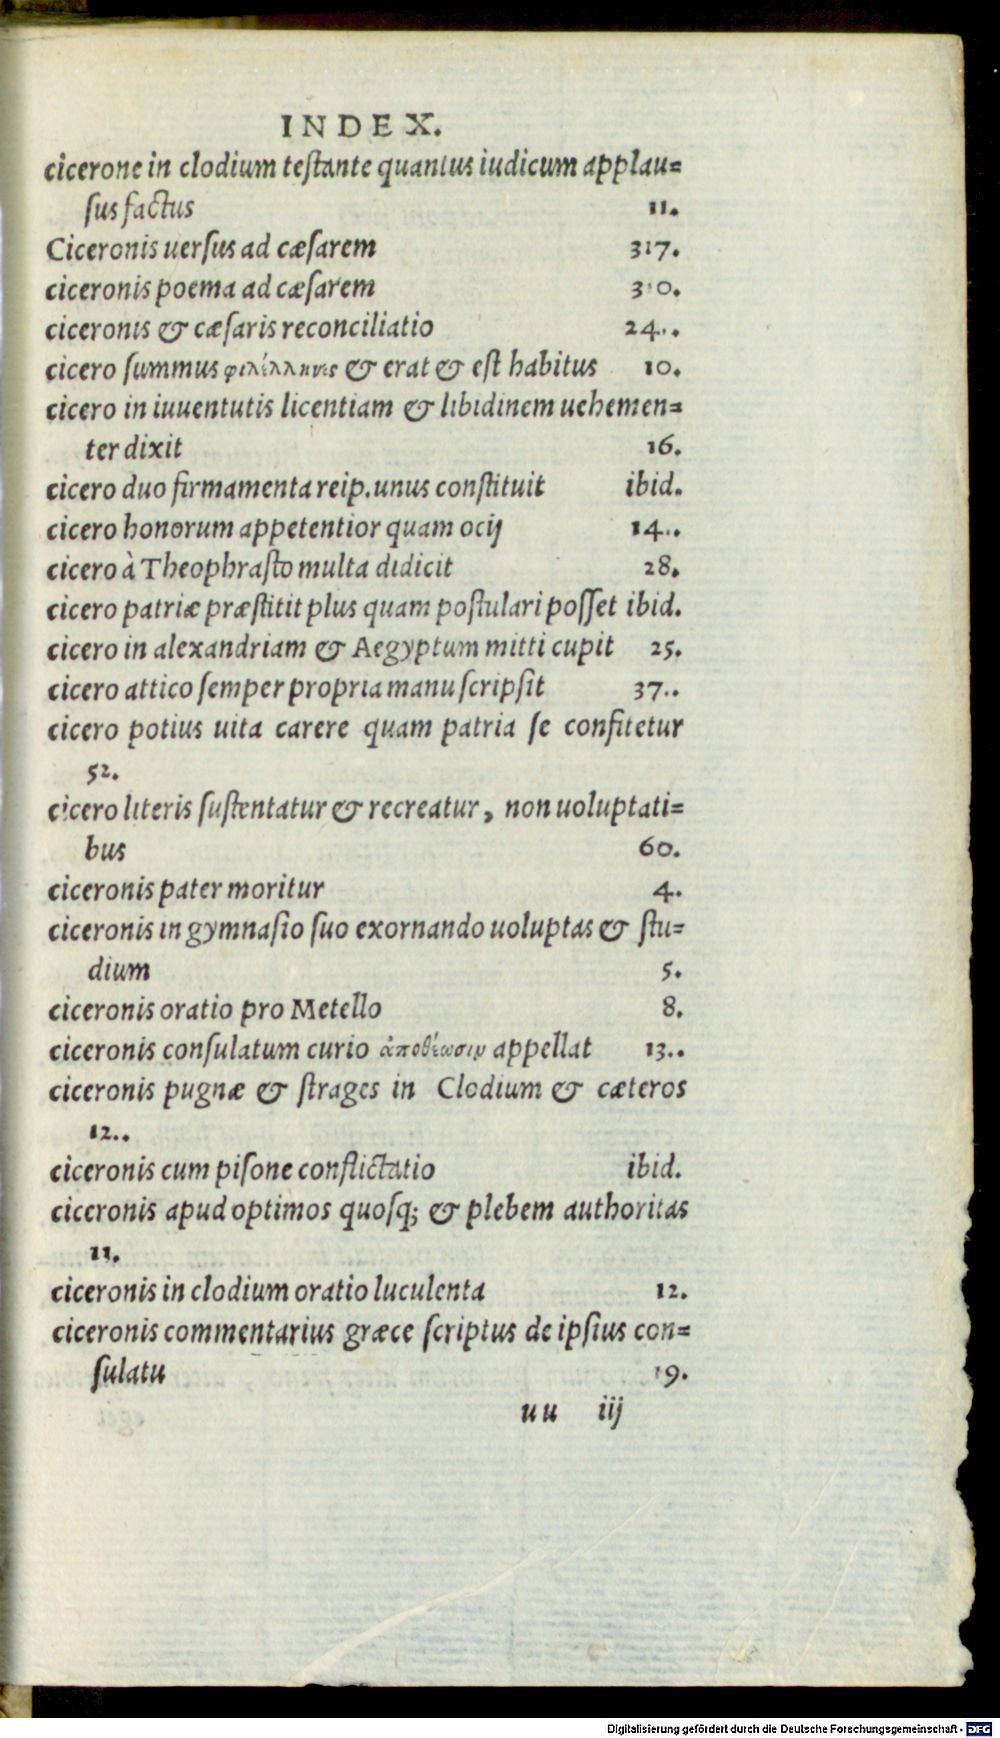 INDEX.
cicerone in clodium teſtante quantus iudicum applau=
ſus factus 11.
Ciceronis uerſus ad cæſarem 317.
ciceronis poema ad cæſarem 310.
ciceronis & cæſaris reconciliatio 24..
cicero ſummus φιλέλλωες & erat & eſt habitus 10.
cicero in iuuentutis licentiam & libidinem uehemen=
ter dixit 16.
cicero duo firmamenta reip. unus conſtituit ibid.
cicero honorum appetentior quam ocij 14..
cicero à Theophraſto multa didicit 28.
cicero patriæ præſtitit plus quam poſtulari poſſet ibid.
cicero in alexandriam & Aegyptum mitti cupit 25.
cicero attico ſemper propria manu ſcripſit 37..
cicero potius uita carere quam patria ſe confitetur
52.
cicero literis ſuſtentatur & recreatur, non uoluptati=
bus 60.
ciceronis pater moritur 4.
ciceronis in gymnaſio ſuo exornando uoluptas & ſtu=
dium 5.
ciceronis oratio pro Metello 8.
ciceronis conſulatum curio ἀποθέωσιν appellat 13..
ciceronis pugnæ & ſtrages in Clodium & cæteros
12..
ciceronis cum piſone conflictatio ibid.
ciceronis apud optimos quoſq; & plebem authoritas
11.
ciceronis in clodium oratio luculenta 12.
ciceronis commentarius græce ſcriptus de ipſius con=
ſulatu 19.
uu iij
Digitalisierung gefördert durch die Deutsche Forschungsgemeinschaft - DFG